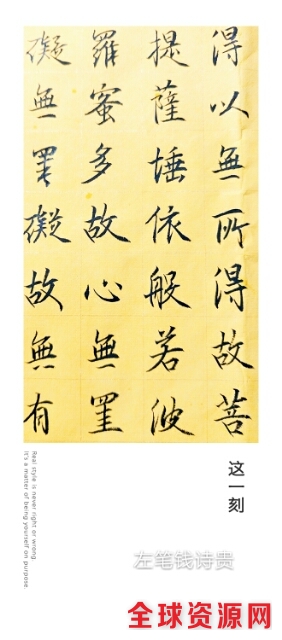 得以無所得故菩
提薩埵依般若波
羅蜜多故心無罣
礙無罣礙故無有
这一刻
Real style is never right or wrong
It's a matter of being yourself on purpose.
左笔钱诗贵
全球资源网